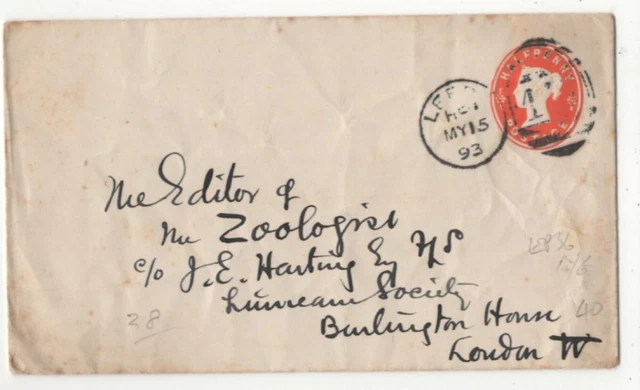 HALFPENNY
POSTAGE
LEEDS
MY 15
93
The Editor of
The Zoologist
c/o J. E. Harting Esq FLS
Linnean Society
Burlington House
London W
28
40